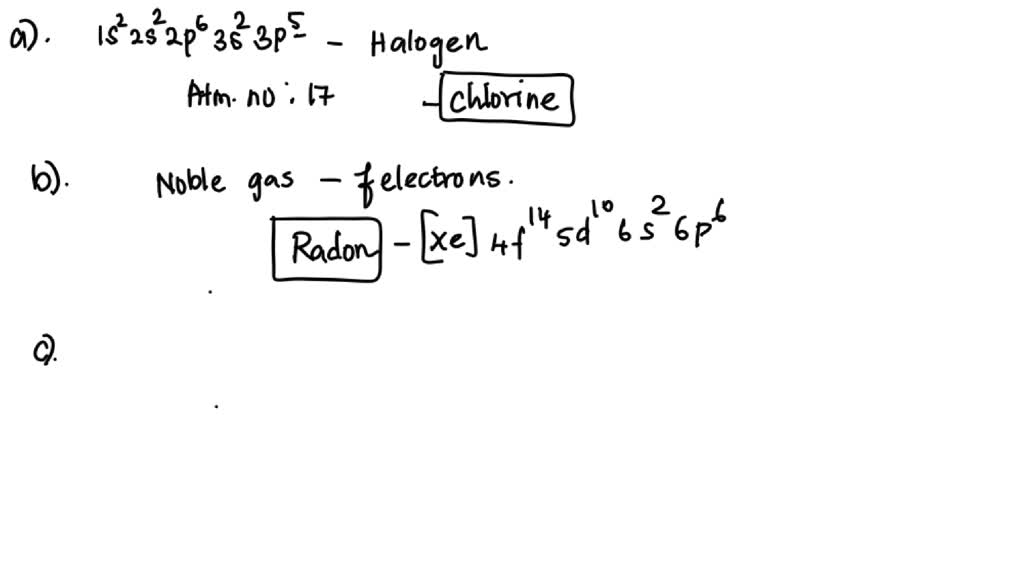 a). 1s² 2s² 2p⁶ 3s² 3p⁵ – Halogen
Atm. no : 17 – Chlorine
b). Noble gas – f electrons.
Radon – [Xe] 4f¹⁴ 5d¹⁰ 6s² 6p⁶
c).